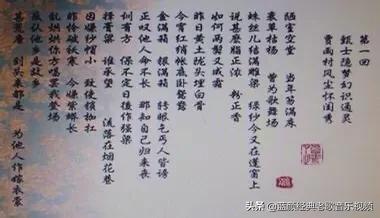 第一回
甄士隐梦幻识通灵
贾雨村风尘怀闺秀
陋室空堂 当年笏满床
衰草枯杨 曾为歌舞场
蛛丝儿结满雕梁 绿纱今又在蓬窗上
说甚么脂正浓 粉正香
如何两鬓又成霜
昨日黄土陇头埋白骨
今宵红绡帐底卧鸳鸯
金满箱 银满箱 转眼乞丐人皆谤
正叹他人命不长 那知自己归来丧
训有方 保不定日后作强梁
择膏粱 谁承望 流落在烟花巷
因嫌纱帽小 致使锁枷扛
昨怜破袄寒 今嫌紫蟒长
乱烘烘你方唱罢我登场
反认他乡是故乡
甚荒唐 到头来都是 为他人作嫁衣裳
头条 @蓝颜经典老歌音乐视频